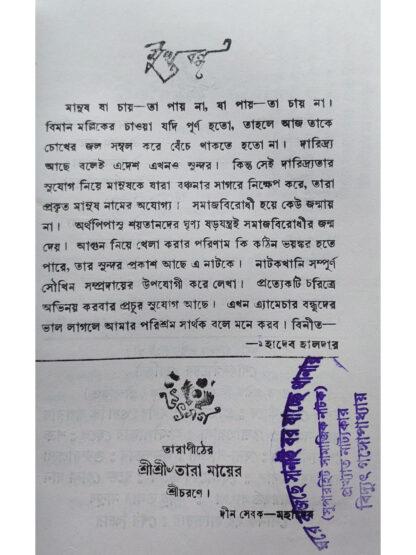 মুখবন্ধ
মানুষ যা চায়—তা পায় না, যা পায়—তা চায় না।
বিমান মল্লিকের চাওয়া যদি পূর্ণ হতো, তাহলে আজ তাকে
চোখের জল সম্বল করে বেঁচে থাকতে হতো না। দারিদ্র্য
আছে বলেই এদেশ এখনও সুন্দর। কিন্তু সেই দারিদ্র্যতার
সুযোগ নিয়ে মানুষকে যারা বঞ্চনার সাগরে নিক্ষেপ করে, তারা
প্রকৃত মানুষ নামের অযোগ্য। সমাজবিরোধী হয়ে কেউ জন্মায়
না। অর্থপিপাসু শয়তানদের ঘৃণ্য ষড়যন্ত্রই সমাজবিরোধীর জন্ম
দেয়। আগুন নিয়ে খেলা করার পরিণাম কি কঠিন ভয়ঙ্কর হতে
পারে, তার সুন্দর প্রকাশ আছে এ নাটকে। নাটকখানি সম্পূর্ণ
সৌখিন সম্প্রদায়ের উপযোগী করে লেখা। প্রত্যেকটি চরিত্রে
অভিনয় করবার প্রচুর সুযোগ আছে। এখন এ্যামেচার বন্ধুদের
ভাল লাগলে আমার পরিশ্রম সার্থক বলে মনে করব। বিনীত—
—মহাদেব হালদার
উৎসর্গ
তারাপীঠের
শ্রীশ্রী তারা মায়ের
শ্রীচরণে।
দীন সেবক—মহাদেব
সানাই বর যাচ্ছে থানায়
(সুপারহিট সামাজিক নাটক)
প্রখ্যাত নাট্যকার
বিদ্যুৎ গঙ্গোপাধ্যায়